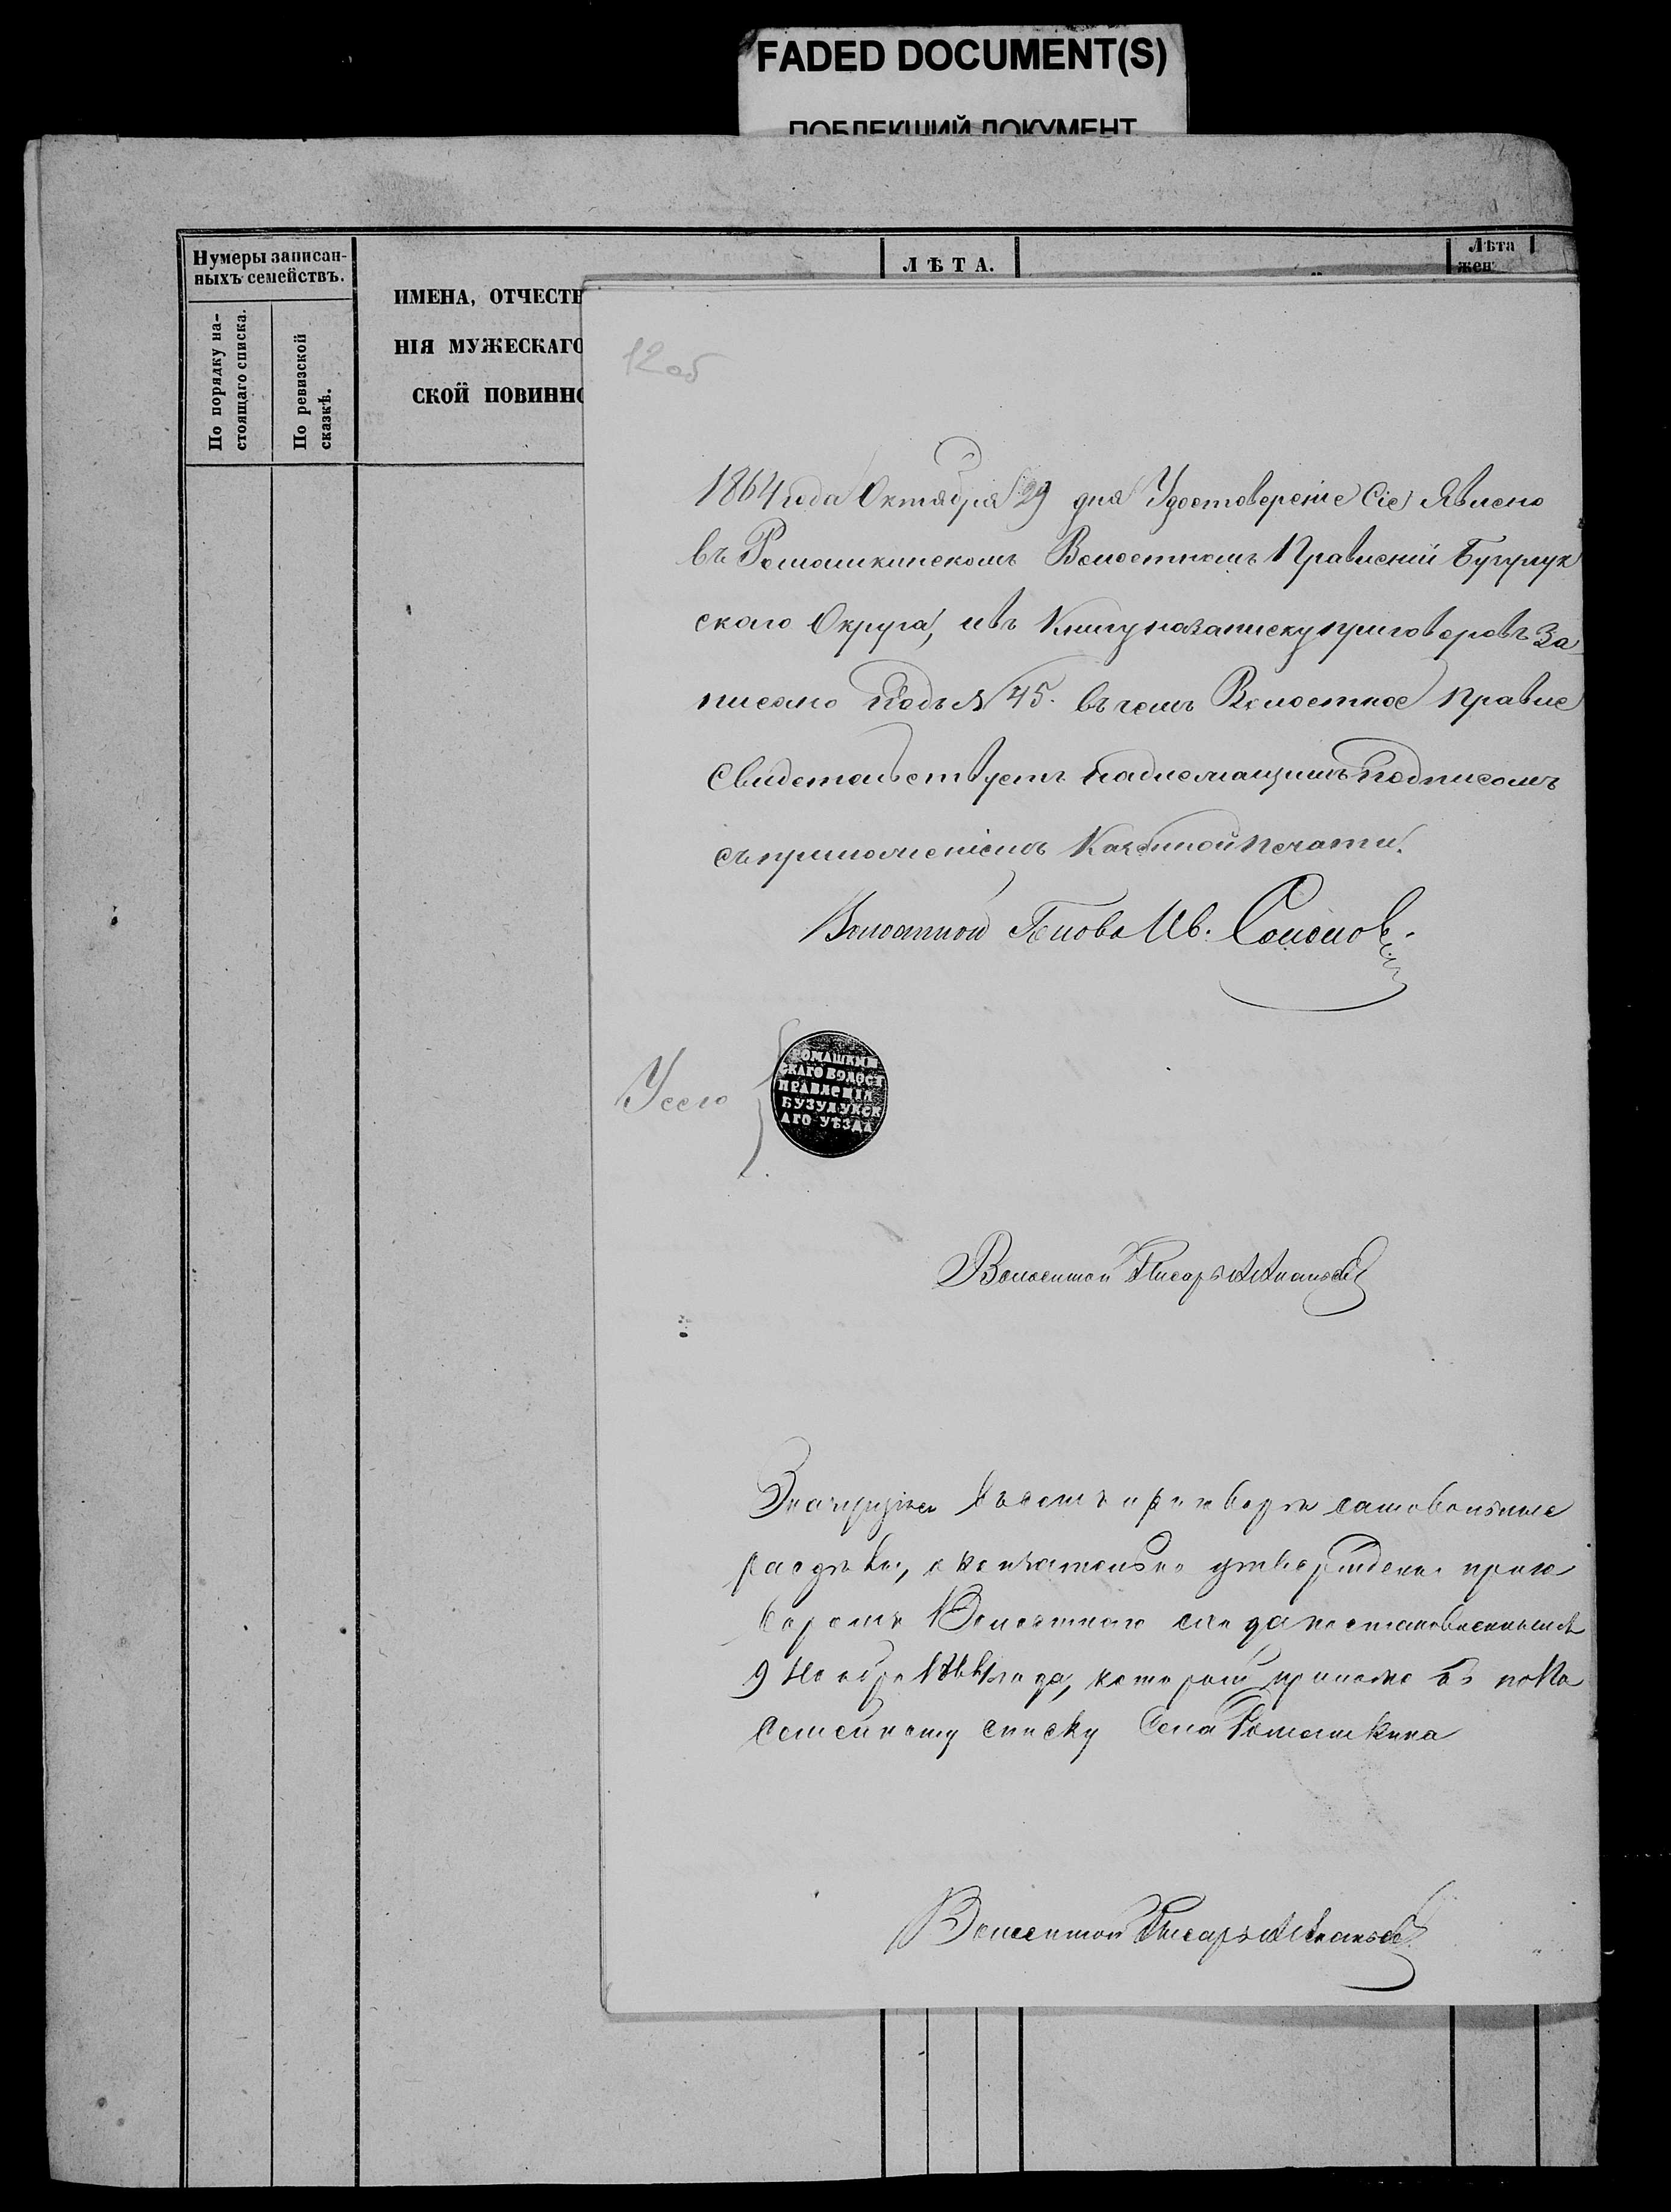 FADED DOCUMENT(S)
ПОБЛЕКШИЙ ДОКУМЕНТ
Нумеры записан-
ныхъ семействъ.
По порядку на-
стоящаго списка.
По ревизской
сказкѣ.
ИМЕНА, ОТЧЕСТВ
НІЯ МУЖЕСКАГО
СКОЙ ПОВИННО
ЛѢТА.
Лѣта
жен
12об
1864 года Октября 29 дня Удостовереніе Сіе Явлено
въ Ромашкинскомъ Волостномъ Правленіи Бузулук
скаго Округа, ивъ Книгу назаписку приговоровъ За
писано Подъ № 45. въ чемъ Волостное Правле
Свидетельствуетъ надлежащимъ подписомъ
съ приложеніемъ Казенной печати.
Волостной Голова Ив. Соколовъ
У сего
РОМАШКИН
СКАГО ВОЛОСТ
ПРАВЛЕНІЯ
БУЗУЛУКСК
АГО УѢЗДА
Волостной Писарь
Значущіеся въ семъ приговорѣ самовольные
разделы, окончательно утверждены приго
воромъ Волостного схода постановленнымъ
9 Ноября года, которой приложенъ къ
Семейному списку Села Ромашкина
Волостной Писарь